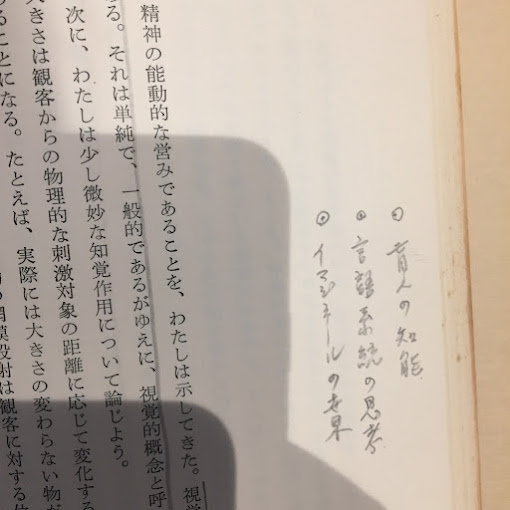 ⊙ 盲人の知能
⊙ 言語系統の思考
⊙ イマジネールの世界
精神の能動的な営みであることを、わたしは示してきた。視覚
る。それは単純で、一般的であるがゆえに、視覚的概念と呼
次に、わたしは少し微妙な知覚作用について論じよう。
大きさは観客からの物理的な刺激対象の距離に応じて変化する
ることになる。たとえば、実際には大きさの変わらない物が
網膜投射は観客に対する